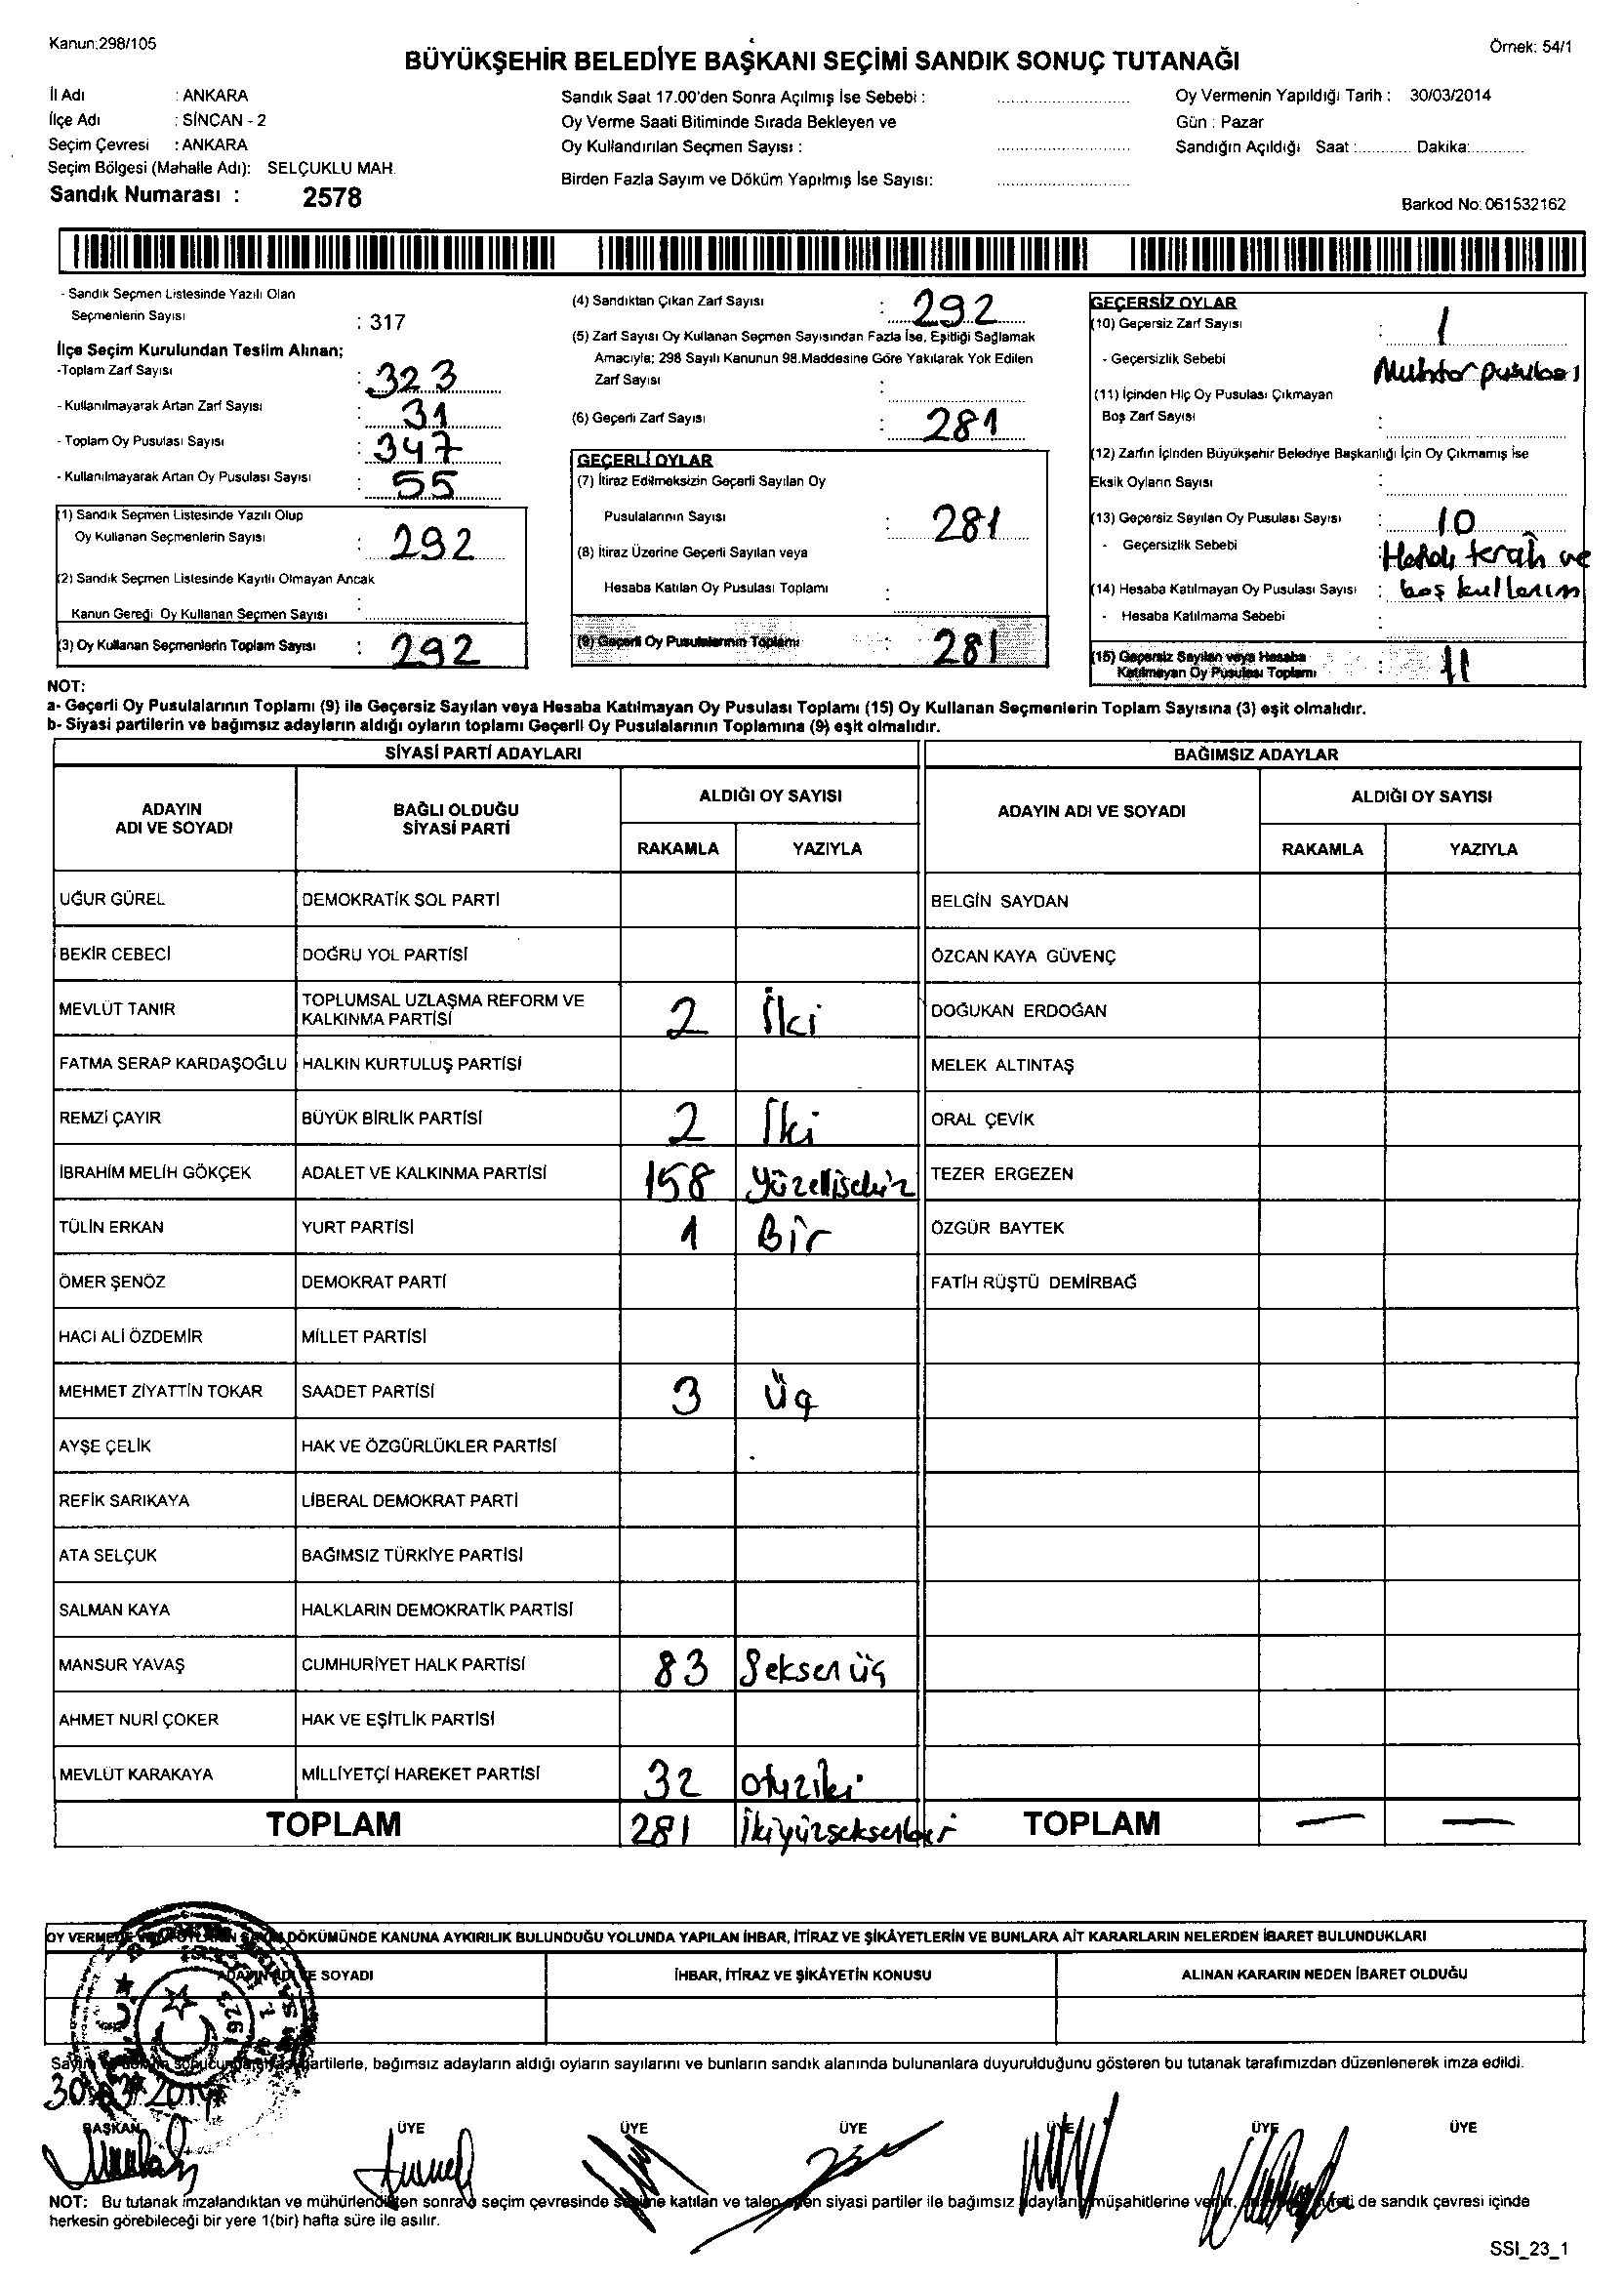 Kanun:298/105
Örnek: 54/1
BÜYÜKŞEHİR BELEDİYE BAŞKANI SEÇİMİ SANDIK SONUÇ TUTANAĞI
İl Adı : ANKARA
İlçe Adı : SİNCAN - 2
Seçim Çevresi : ANKARA
Seçim Bölgesi (Mahalle Adı): SELÇUKLU MAH.
Sandık Numarası : 2578
Sandık Saat 17.00'den Sonra Açılmış İse Sebebi :
Oy Verme Saati Bitiminde Sırada Bekleyen ve
Oy Kullandırılan Seçmen Sayısı :
Birden Fazla Sayım ve Döküm Yapılmış İse Sayısı:
Oy Vermenin Yapıldığı Tarih : 30/03/2014
Gün : Pazar
Sandığın Açıldığı Saat :............ Dakika:............
Barkod No: 061532162
- Sandık Seçmen Listesinde Yazılı Olan
Seçmenlerin Sayısı : 317
İlçe Seçim Kurulundan Teslim Alınan;
-Toplam Zarf Sayısı : 323
- Kullanılmayarak Artan Zarf Sayısı : 31
- Toplam Oy Pusulası Sayısı : 347
- Kullanılmayarak Artan Oy Pusulası Sayısı : 55
(1) Sandık Seçmen Listesinde Yazılı Olup
Oy Kullanan Seçmenlerin Sayısı : 292
(2) Sandık Seçmen Listesinde Kayıtlı Olmayan Ancak
Kanun Gereği Oy Kullanan Seçmen Sayısı :
(3) Oy Kullanan Seçmenlerin Toplam Sayısı : 292
(4) Sandıktan Çıkan Zarf Sayısı : 292
(5) Zarf Sayısı Oy Kullanan Seçmen Sayısından Fazla İse, Eşitliği Sağlamak
Amacıyla; 298 Sayılı Kanunun 98.Maddesine Göre Yakılarak Yok Edilen
Zarf Sayısı :
(6) Geçerli Zarf Sayısı : 281
GEÇERLİ OYLAR
(7) İtiraz Edilmeksizin Geçerli Sayılan Oy
Pusulalarının Sayısı : 281
(8) İtiraz Üzerine Geçerli Sayılan veya
Hesaba Katılan Oy Pusulası Toplamı :
(9) Geçerli Oy Pusulalarının Toplamı : 281
GEÇERSİZ OYLAR
(10) Geçersiz Zarf Sayısı : 1
- Geçersizlik Sebebi Muhtar pusulası
(11) İçinden Hiç Oy Pusulası Çıkmayan
Boş Zarf Sayısı :
(12) Zarfın İçinden Büyükşehir Belediye Başkanlığı İçin Oy Çıkmamış ise
Eksik Oyların Sayısı :
(13) Geçersiz Sayılan Oy Pusulası Sayısı : 10
- Geçersizlik Sebebi : ve
(14) Hesaba Katılmayan Oy Pusulası Sayısı : boş
- Hesaba Katılmama Sebebi :
(15) Geçersiz Sayılan veya Hesaba
Katılmayan Oy Pusulası Toplamı : 11
NOT:
a- Geçerli Oy Pusulalarının Toplamı (9) ile Geçersiz Sayılan veya Hesaba Katılmayan Oy Pusulası Toplamı (15) Oy Kullanan Seçmenlerin Toplam Sayısına (3) eşit olmalıdır.
b- Siyasi partilerin ve bağımsız adayların aldığı oyların toplamı Geçerli Oy Pusulalarının Toplamına (9) eşit olmalıdır.
SİYASİ PARTİ ADAYLARI BAĞIMSIZ ADAYLAR
ADAYIN ADI VE SOYADI BAĞLI OLDUĞU SİYASİ PARTİ ALDIĞI OY SAYISI ADAYIN ADI VE SOYADI ALDIĞI OY SAYISI
RAKAMLA YAZIYLA RAKAMLA YAZIYLA
UĞUR GÜREL DEMOKRATİK SOL PARTİ BELGİN SAYDAN
BEKİR CEBECİ DOĞRU YOL PARTİSİ ÖZCAN KAYA GÜVENÇ
MEVLÜT TANIR TOPLUMSAL UZLAŞMA REFORM VE KALKINMA PARTİSİ 2 İki DOĞUKAN ERDOĞAN
FATMA SERAP KARDAŞOĞLU HALKIN KURTULUŞ PARTİSİ MELEK ALTINTAŞ
REMZİ ÇAYIR BÜYÜK BİRLİK PARTİSİ 2 İki ORAL ÇEVİK
İBRAHİM MELİH GÖKÇEK ADALET VE KALKINMA PARTİSİ 158 Yüzellisekiz TEZER ERGEZEN
TÜLİN ERKAN YURT PARTİSİ 1 Bir ÖZGÜR BAYTEK
ÖMER ŞENÖZ DEMOKRAT PARTİ FATİH RÜŞTÜ DEMİRBAĞ
HACI ALİ ÖZDEMİR MİLLET PARTİSİ
MEHMET ZİYATTİN TOKAR SAADET PARTİSİ 3 Üç
AYŞE ÇELİK HAK VE ÖZGÜRLÜKLER PARTİSİ
REFİK SARIKAYA LİBERAL DEMOKRAT PARTİ
ATA SELÇUK BAĞIMSIZ TÜRKİYE PARTİSİ
SALMAN KAYA HALKLARIN DEMOKRATİK PARTİSİ
MANSUR YAVAŞ CUMHURİYET HALK PARTİSİ 83 Seksen üç
AHMET NURİ ÇOKER HAK VE EŞİTLİK PARTİSİ
MEVLÜT KARAKAYA MİLLİYETÇİ HAREKET PARTİSİ 32 otuziki
TOPLAM 281 İkiyüzseksenbir TOPLAM — —
OY VERME DÖKÜMÜNDE KANUNA AYKIRILIK BULUNDUĞU YOLUNDA YAPILAN İHBAR, İTİRAZ VE ŞİKÂYETLERİN VE BUNLARA AİT KARARLARIN NELERDEN İBARET BULUNDUKLARI
ADAYIN ADI VE SOYADI İHBAR, İTİRAZ VE ŞİKÂYETİN KONUSU ALINAN KARARIN NEDEN İBARET OLDUĞU
Sayım partilerle, bağımsız adayların aldığı oyların sayılarını ve bunların sandık alanında bulunanlara duyurulduğunu gösteren bu tutanak tarafımızdan düzenlenerek imza edildi.
30.03.2014
BAŞKAN ÜYE ÜYE ÜYE ÜYE ÜYE ÜYE
NOT: Bu tutanak imzalandıktan ve mühürlendikten sonra seçim çevresinde seçime katılan ve talep eden siyasi partiler ile bağımsız adayların müşahitlerine verilir, de sandık çevresi içinde
herkesin görebileceği bir yere 1(bir) hafta süre ile asılır.
SSI_23_1